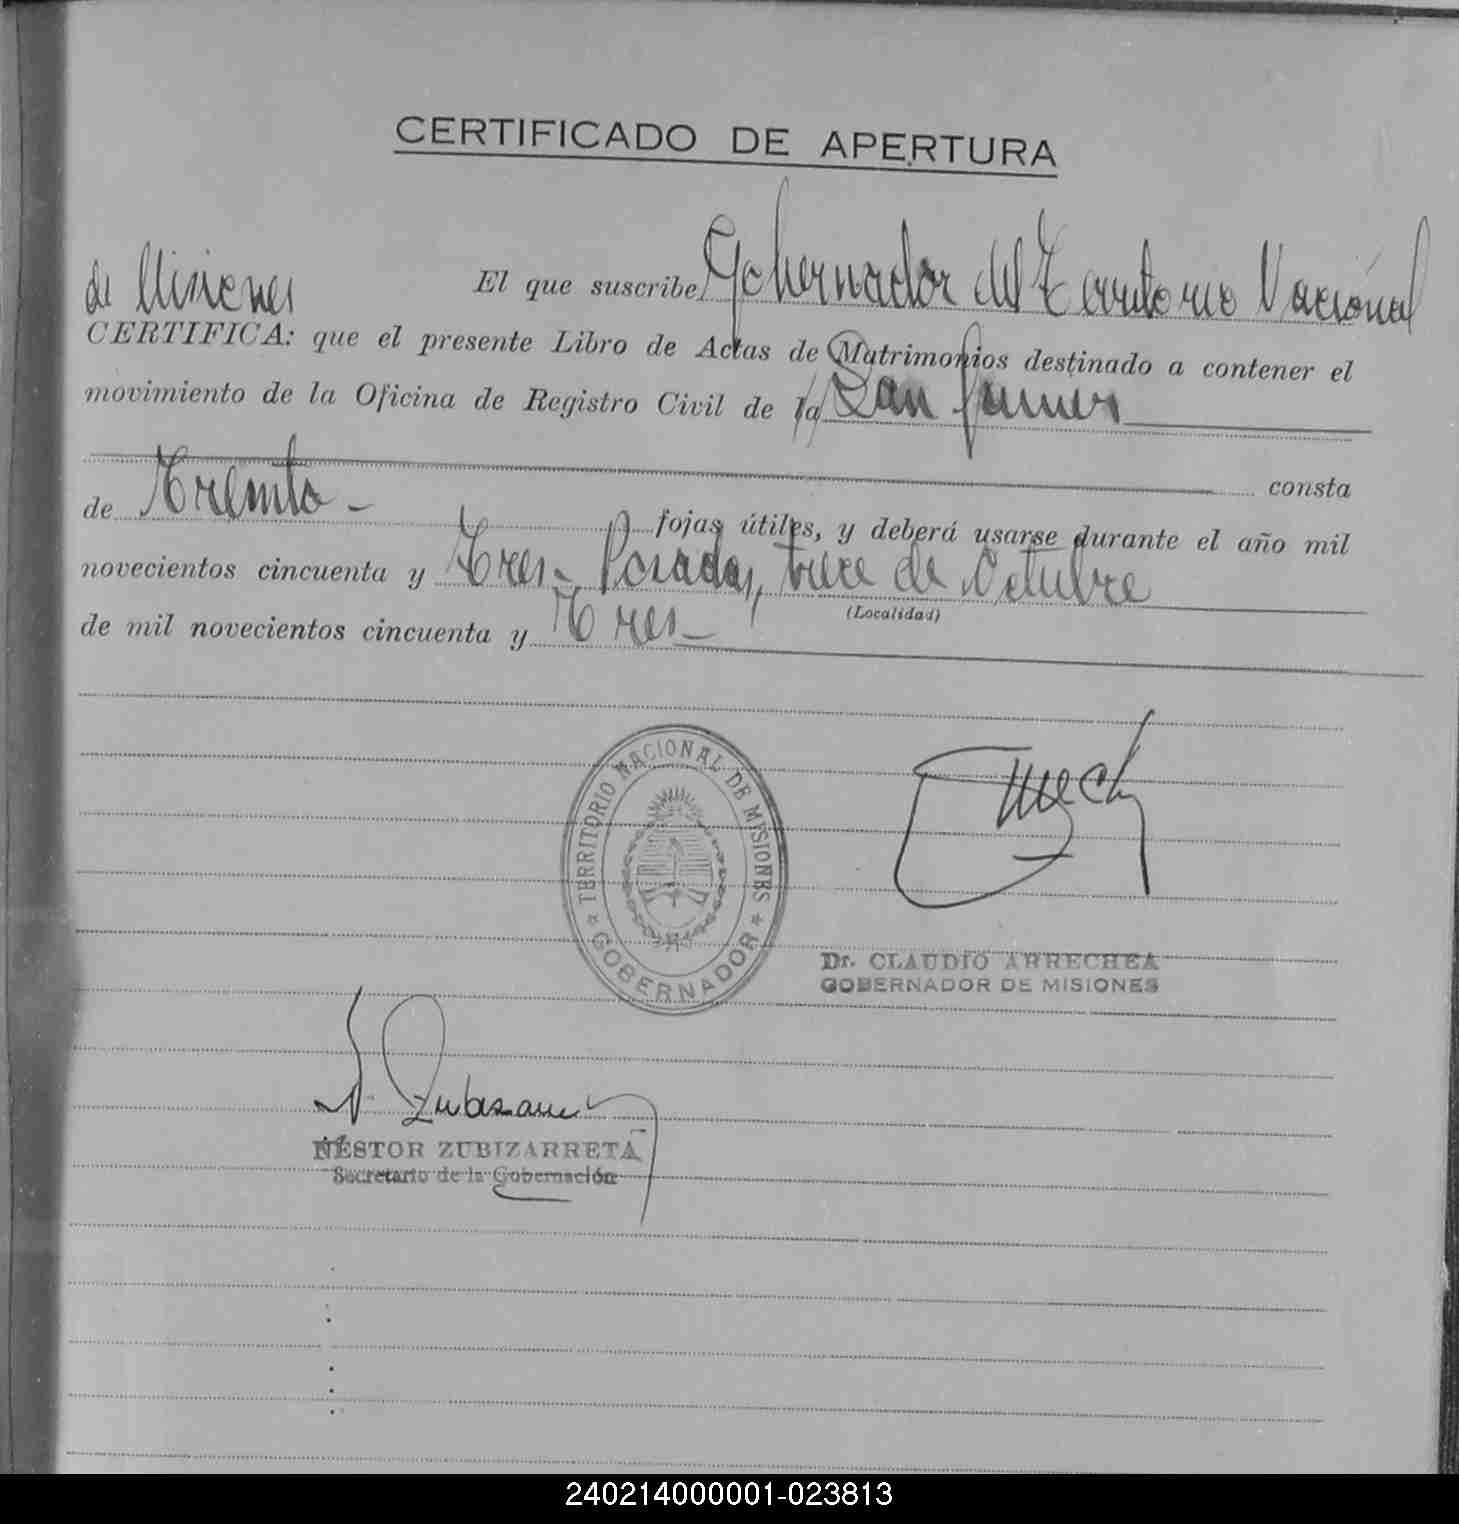 CERTIFICADO DE APERTURA
El que suscribe Gobernador del Territorio Nacional
de Misiones
CERTIFICA: que el presente Libro de Actas de Matrimonios destinado a contener el
movimiento de la Oficina de Registro Civil de la San Javier
consta
de Treinta - fojas útiles, y deberá usarse durante el año mil
novecientos cincuenta y Tres - Posadas, trece de Octubre
(Localidad)
de mil novecientos cincuenta y Tres -
TERRITORIO NACIONAL DE MISIONES
* GOBERNADOR *
Dr. CLAUDIO ARRECHEA
GOBERNADOR DE MISIONES
N. Zubizarreta
NÉSTOR ZUBIZARRETA
Secretario de la Gobernación
240214000001-023813